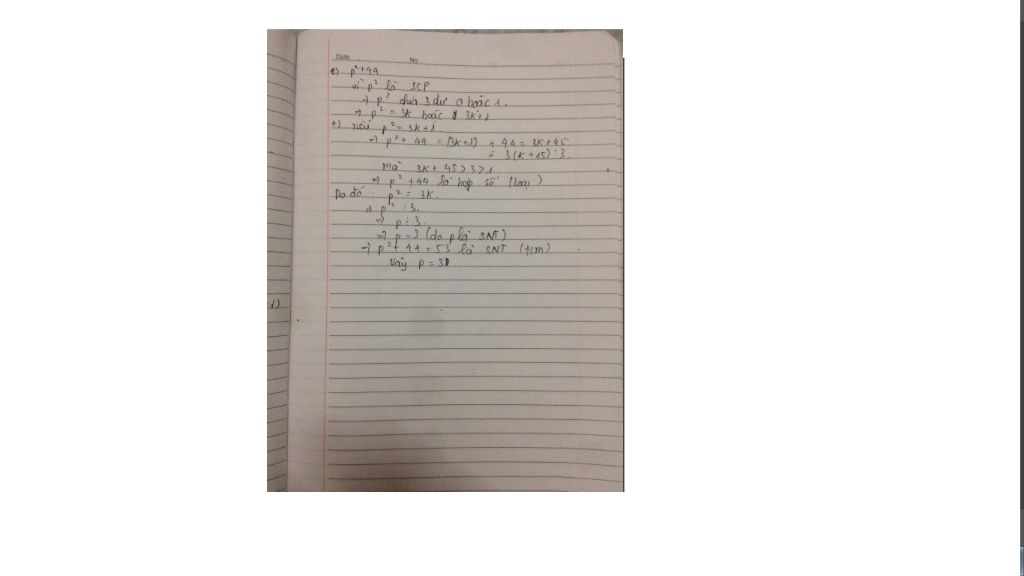 Date No
e) p²+44
vì p² là SCP
⇒ p² chia 3 dư 0 hoặc 1.
⇒ p² = 3k hoặc 3k+1
+) nếu p² = 3k+1.
⇒ p² + 44 = (3k+1) + 44 = 3k+45
= 3(k+15) ⋮ 3.
mà 3k+45 > 3 > 1
⇒ p² + 44 là hợp số (loại)
Do đó : p² = 3k.
⇒ p² ⋮ 3.
⇒ p ⋮ 3.
⇒ p = 3 (do p là SNT)
⇒ p² + 44 = 53 là SNT (t/m)
Vậy p = 3
1)